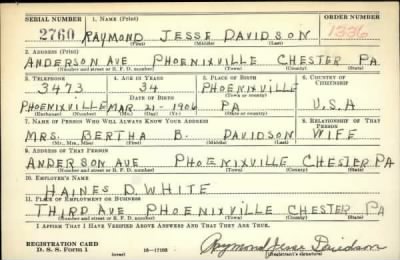 SERIAL NUMBER 1. NAME (Print) ORDER NUMBER
2760 RAYMOND JESSE DAVIDSON 1336
(First) (Middle) (Last)
2. ADDRESS (Print)
ANDERSON AVE PHOENIXVILLE CHESTER PA
(Number and street or R. F. D. number) (Town) (County) (State)
3. TELEPHONE 4. AGE IN YEARS 5. PLACE OF BIRTH 6. COUNTRY OF CITIZENSHIP
3473 34 PHOENIXVILLE
DATE OF BIRTH (Town or county)
PHOENIXVILLE MAR 21-1906 PA U.S.A
(Exchange) (Number) (Mo.) (Day) (Yr.) (State or country)
7. NAME OF PERSON WHO WILL ALWAYS KNOW YOUR ADDRESS 8. RELATIONSHIP OF THAT PERSON
MRS. BERTHA B. DAVIDSON WIFE
(Mr., Mrs., Miss) (First) (Middle) (Last)
9. ADDRESS OF THAT PERSON
ANDERSON AVE PHOENIXVILLE CHESTER PA
(Number and street or R. F. D. number) (Town) (County) (State)
10. EMPLOYER'S NAME
HAINES D. WHITE
11. PLACE OF EMPLOYMENT OR BUSINESS
THIRD AVE PHOENIXVILLE CHESTER PA
(Number and street or R. F. D. number) (Town) (County) (State)
I AFFIRM THAT I HAVE VERIFIED ABOVE ANSWERS AND THAT THEY ARE TRUE.
REGISTRATION CARD
D. S. S. Form 1 16-17105 Raymond Jesse Davidson
(Registrant's signature)